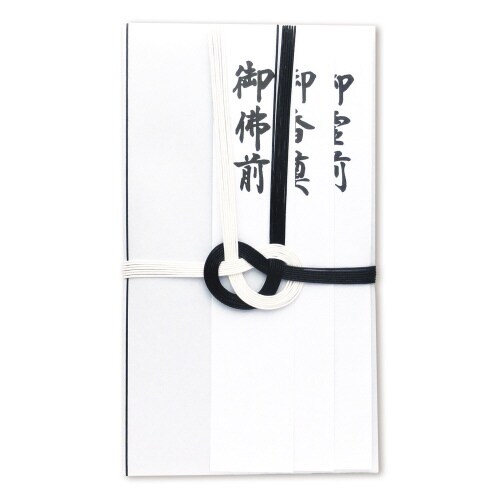 御霊前
御香奠
御佛前